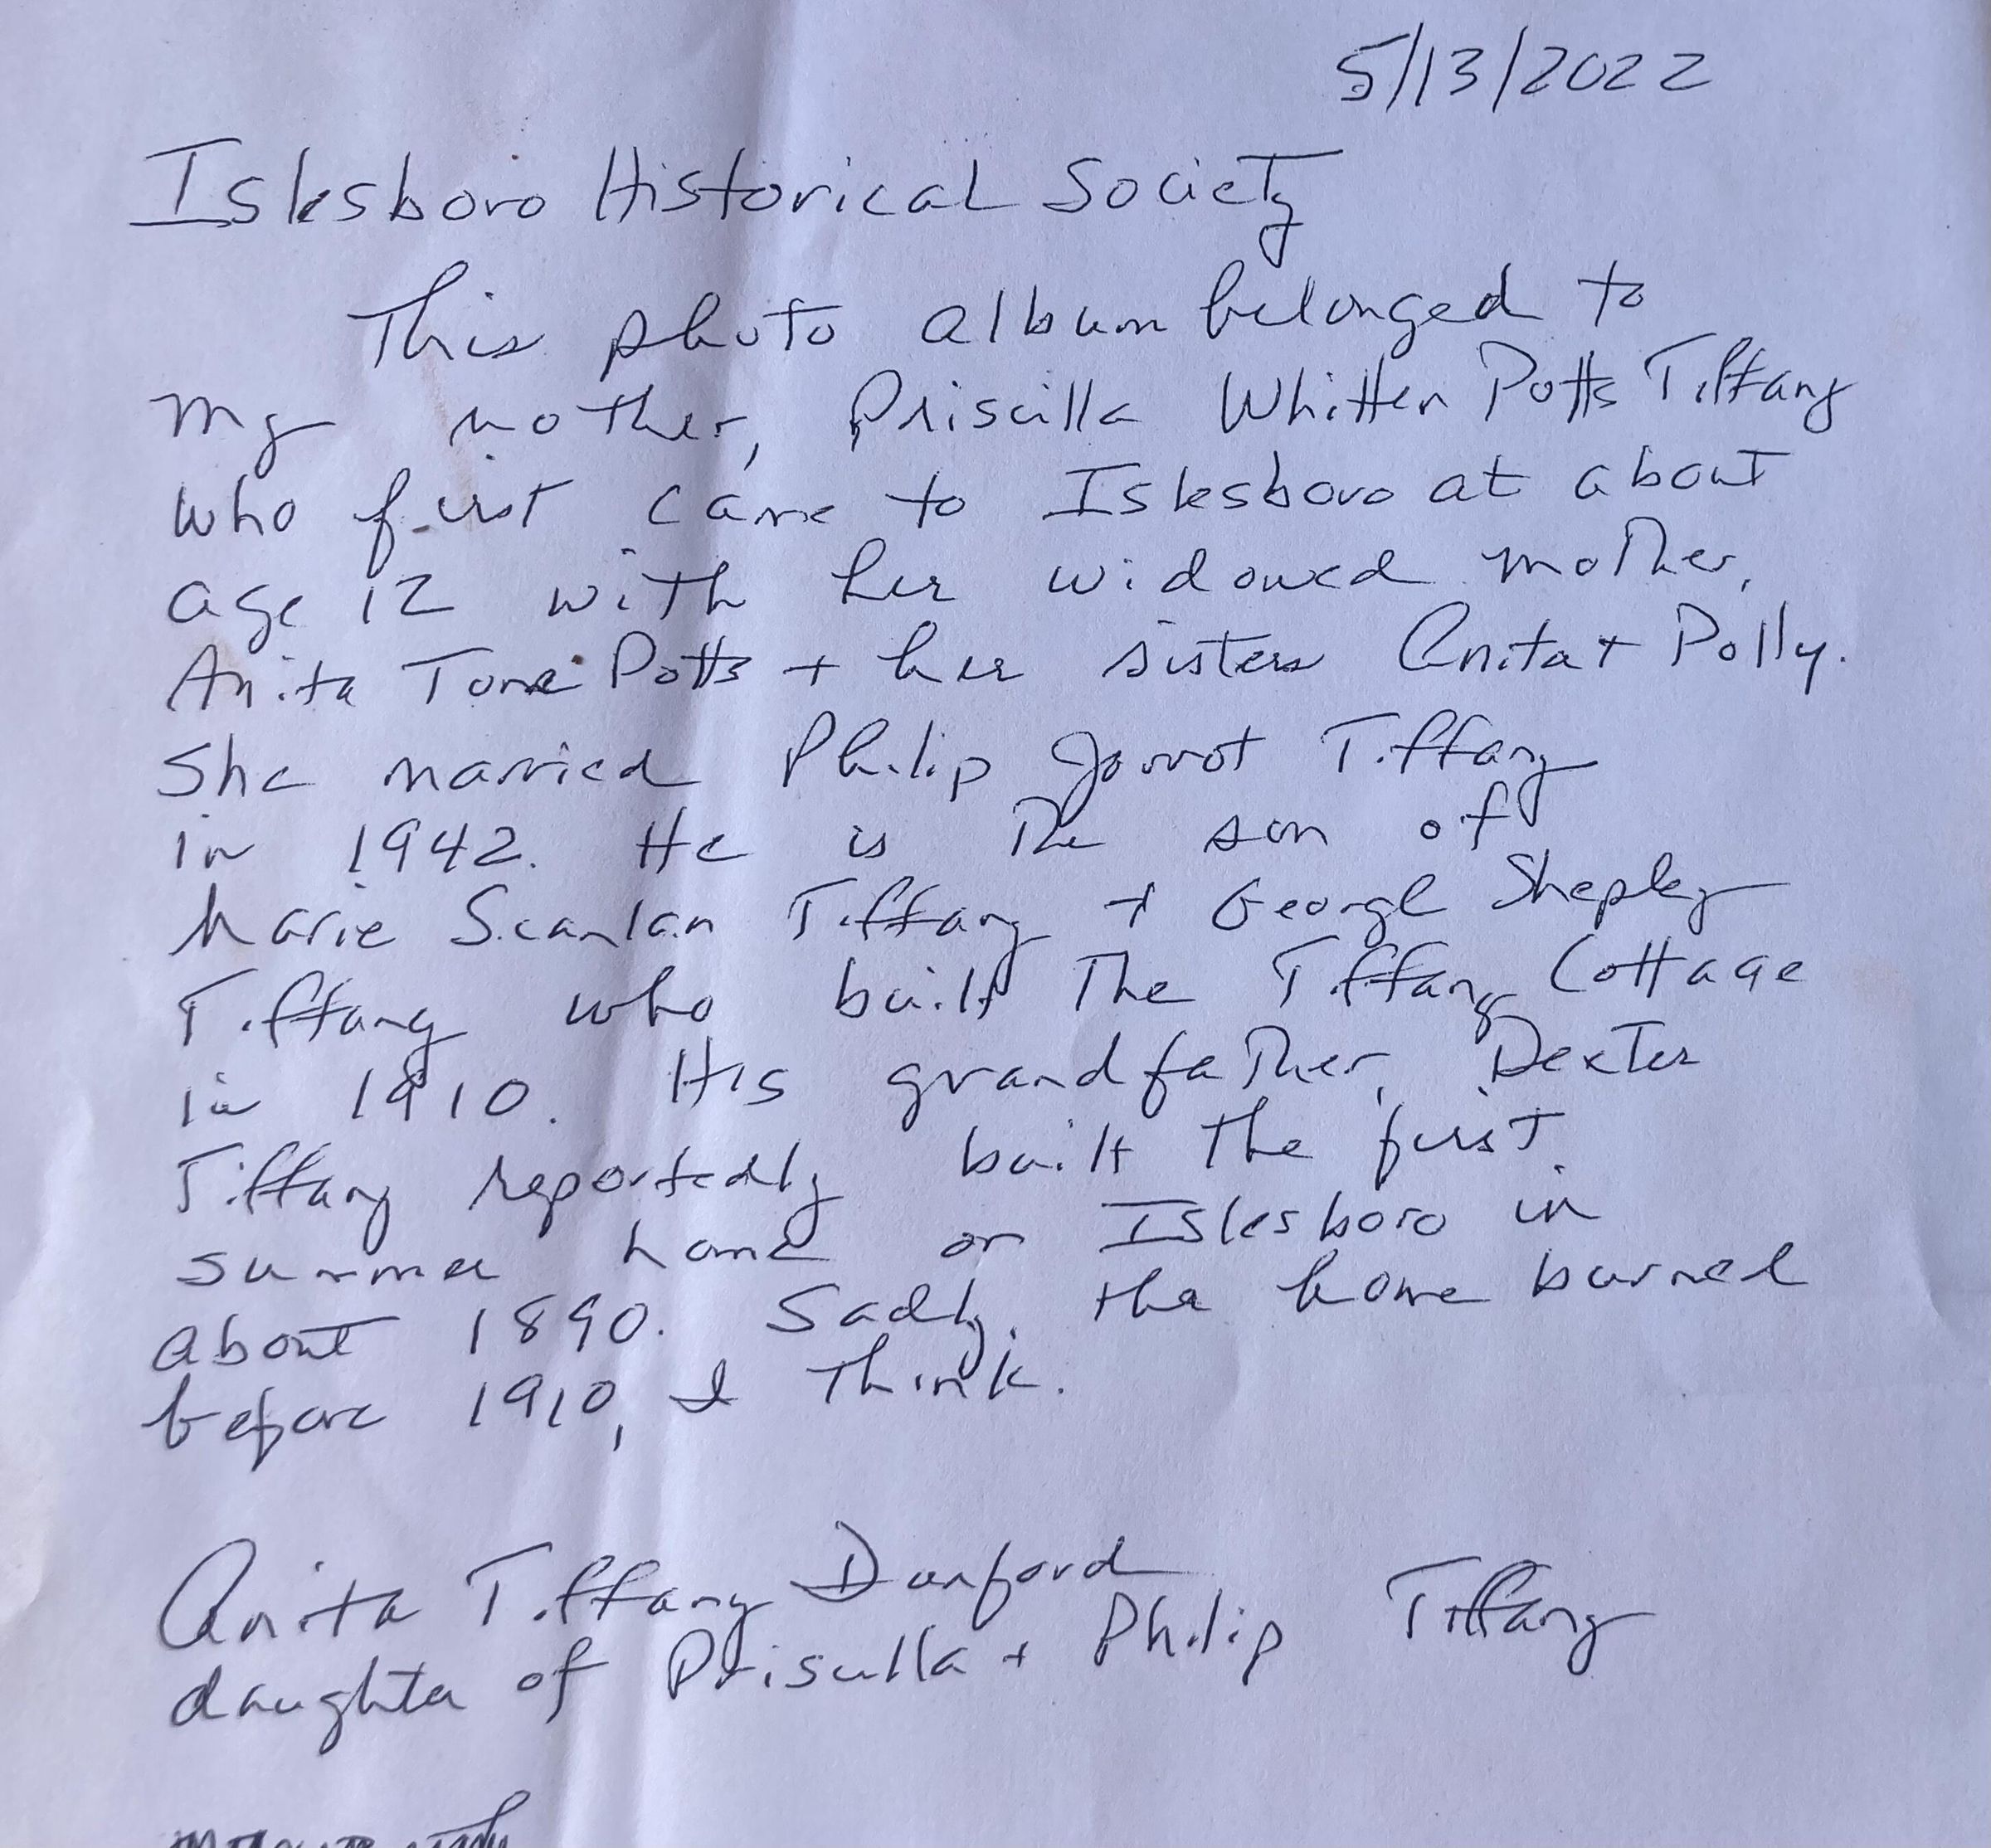 5/13/2022
Islesboro Historical Society
This photo album belonged to
my mother, Priscilla Whitten Potts Tiffany
who first came to Islesboro at about
age 12 with her widowed mother,
Anita Tone Potts + her sisters Anita + Polly.
She married Philip Jarrot Tiffany
in 1942. He is the son of
Marie Scanlan Tiffany + George Shepley
Tiffany who built The Tiffany Cottage
in 1910. His grandfather, Dexter
Tiffany reportedly built the first
summer home on Islesboro in
about 1890. Sadly, the home burned
before 1910, I think.
Anita Tiffany Danford
daughter of Priscilla + Philip Tiffany